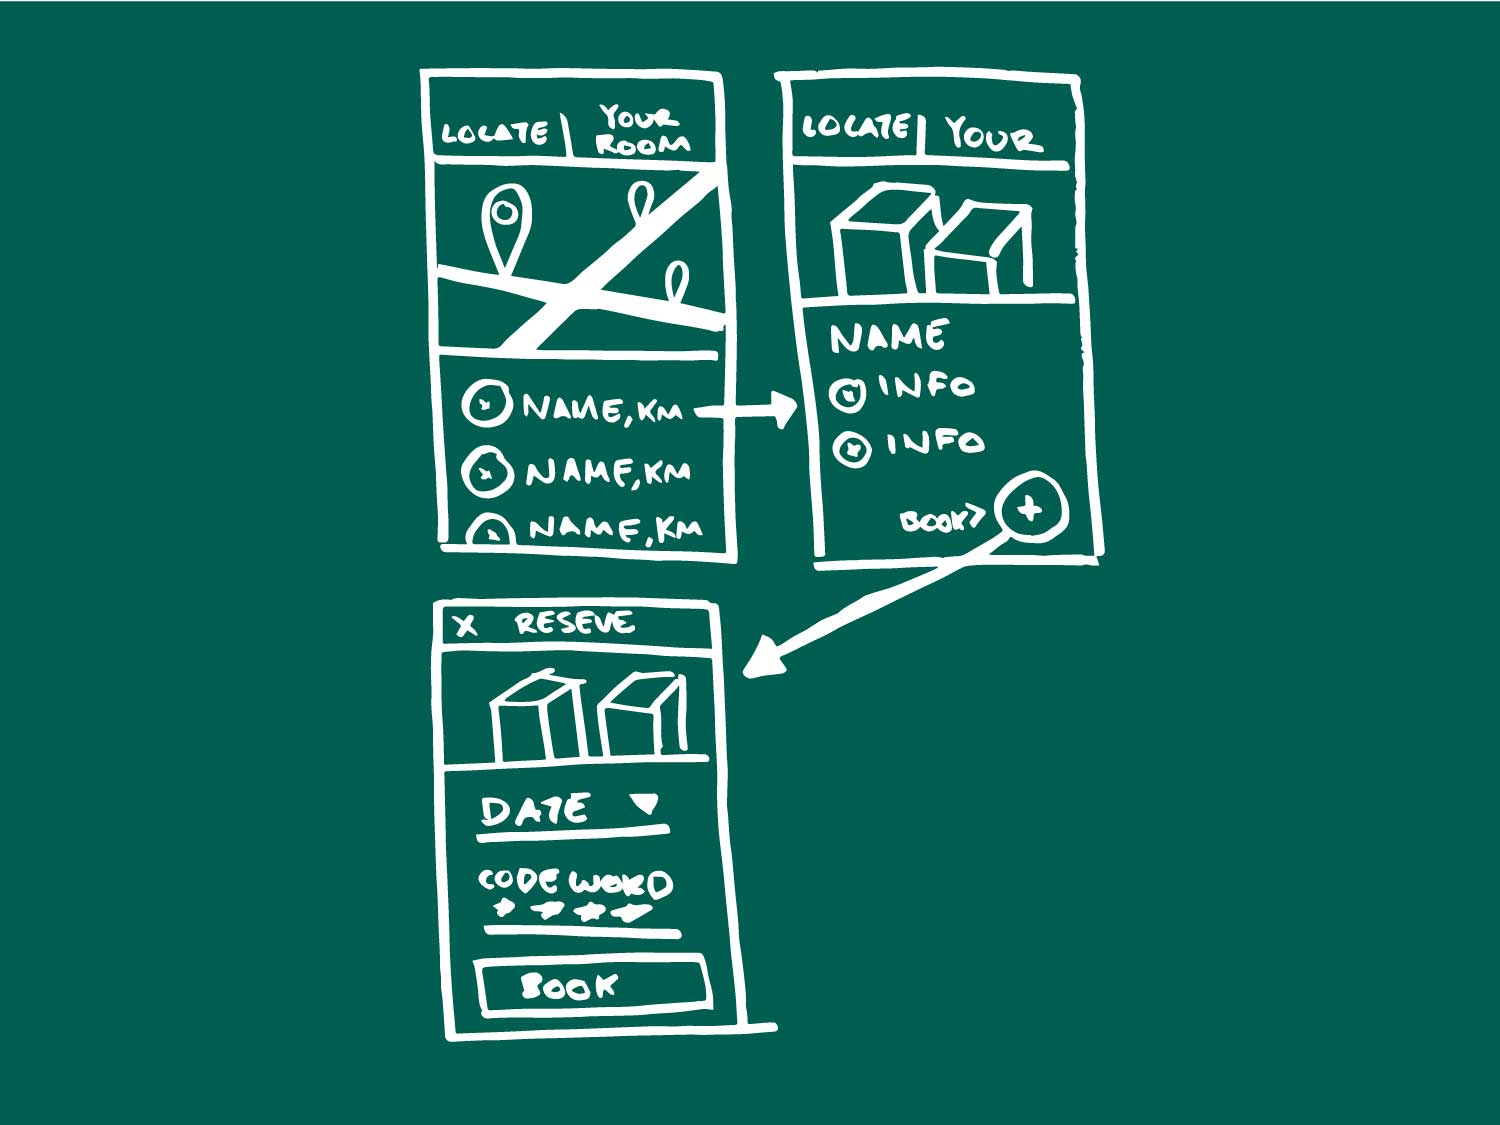 LOCATE
YOUR
ROOM
NAME, KM
NAME, KM
NAME, KM
LOCATE
YOUR
NAME
INFO
INFO
BOOK>
X RESEVE
DATE
CODE WORD
BOOK